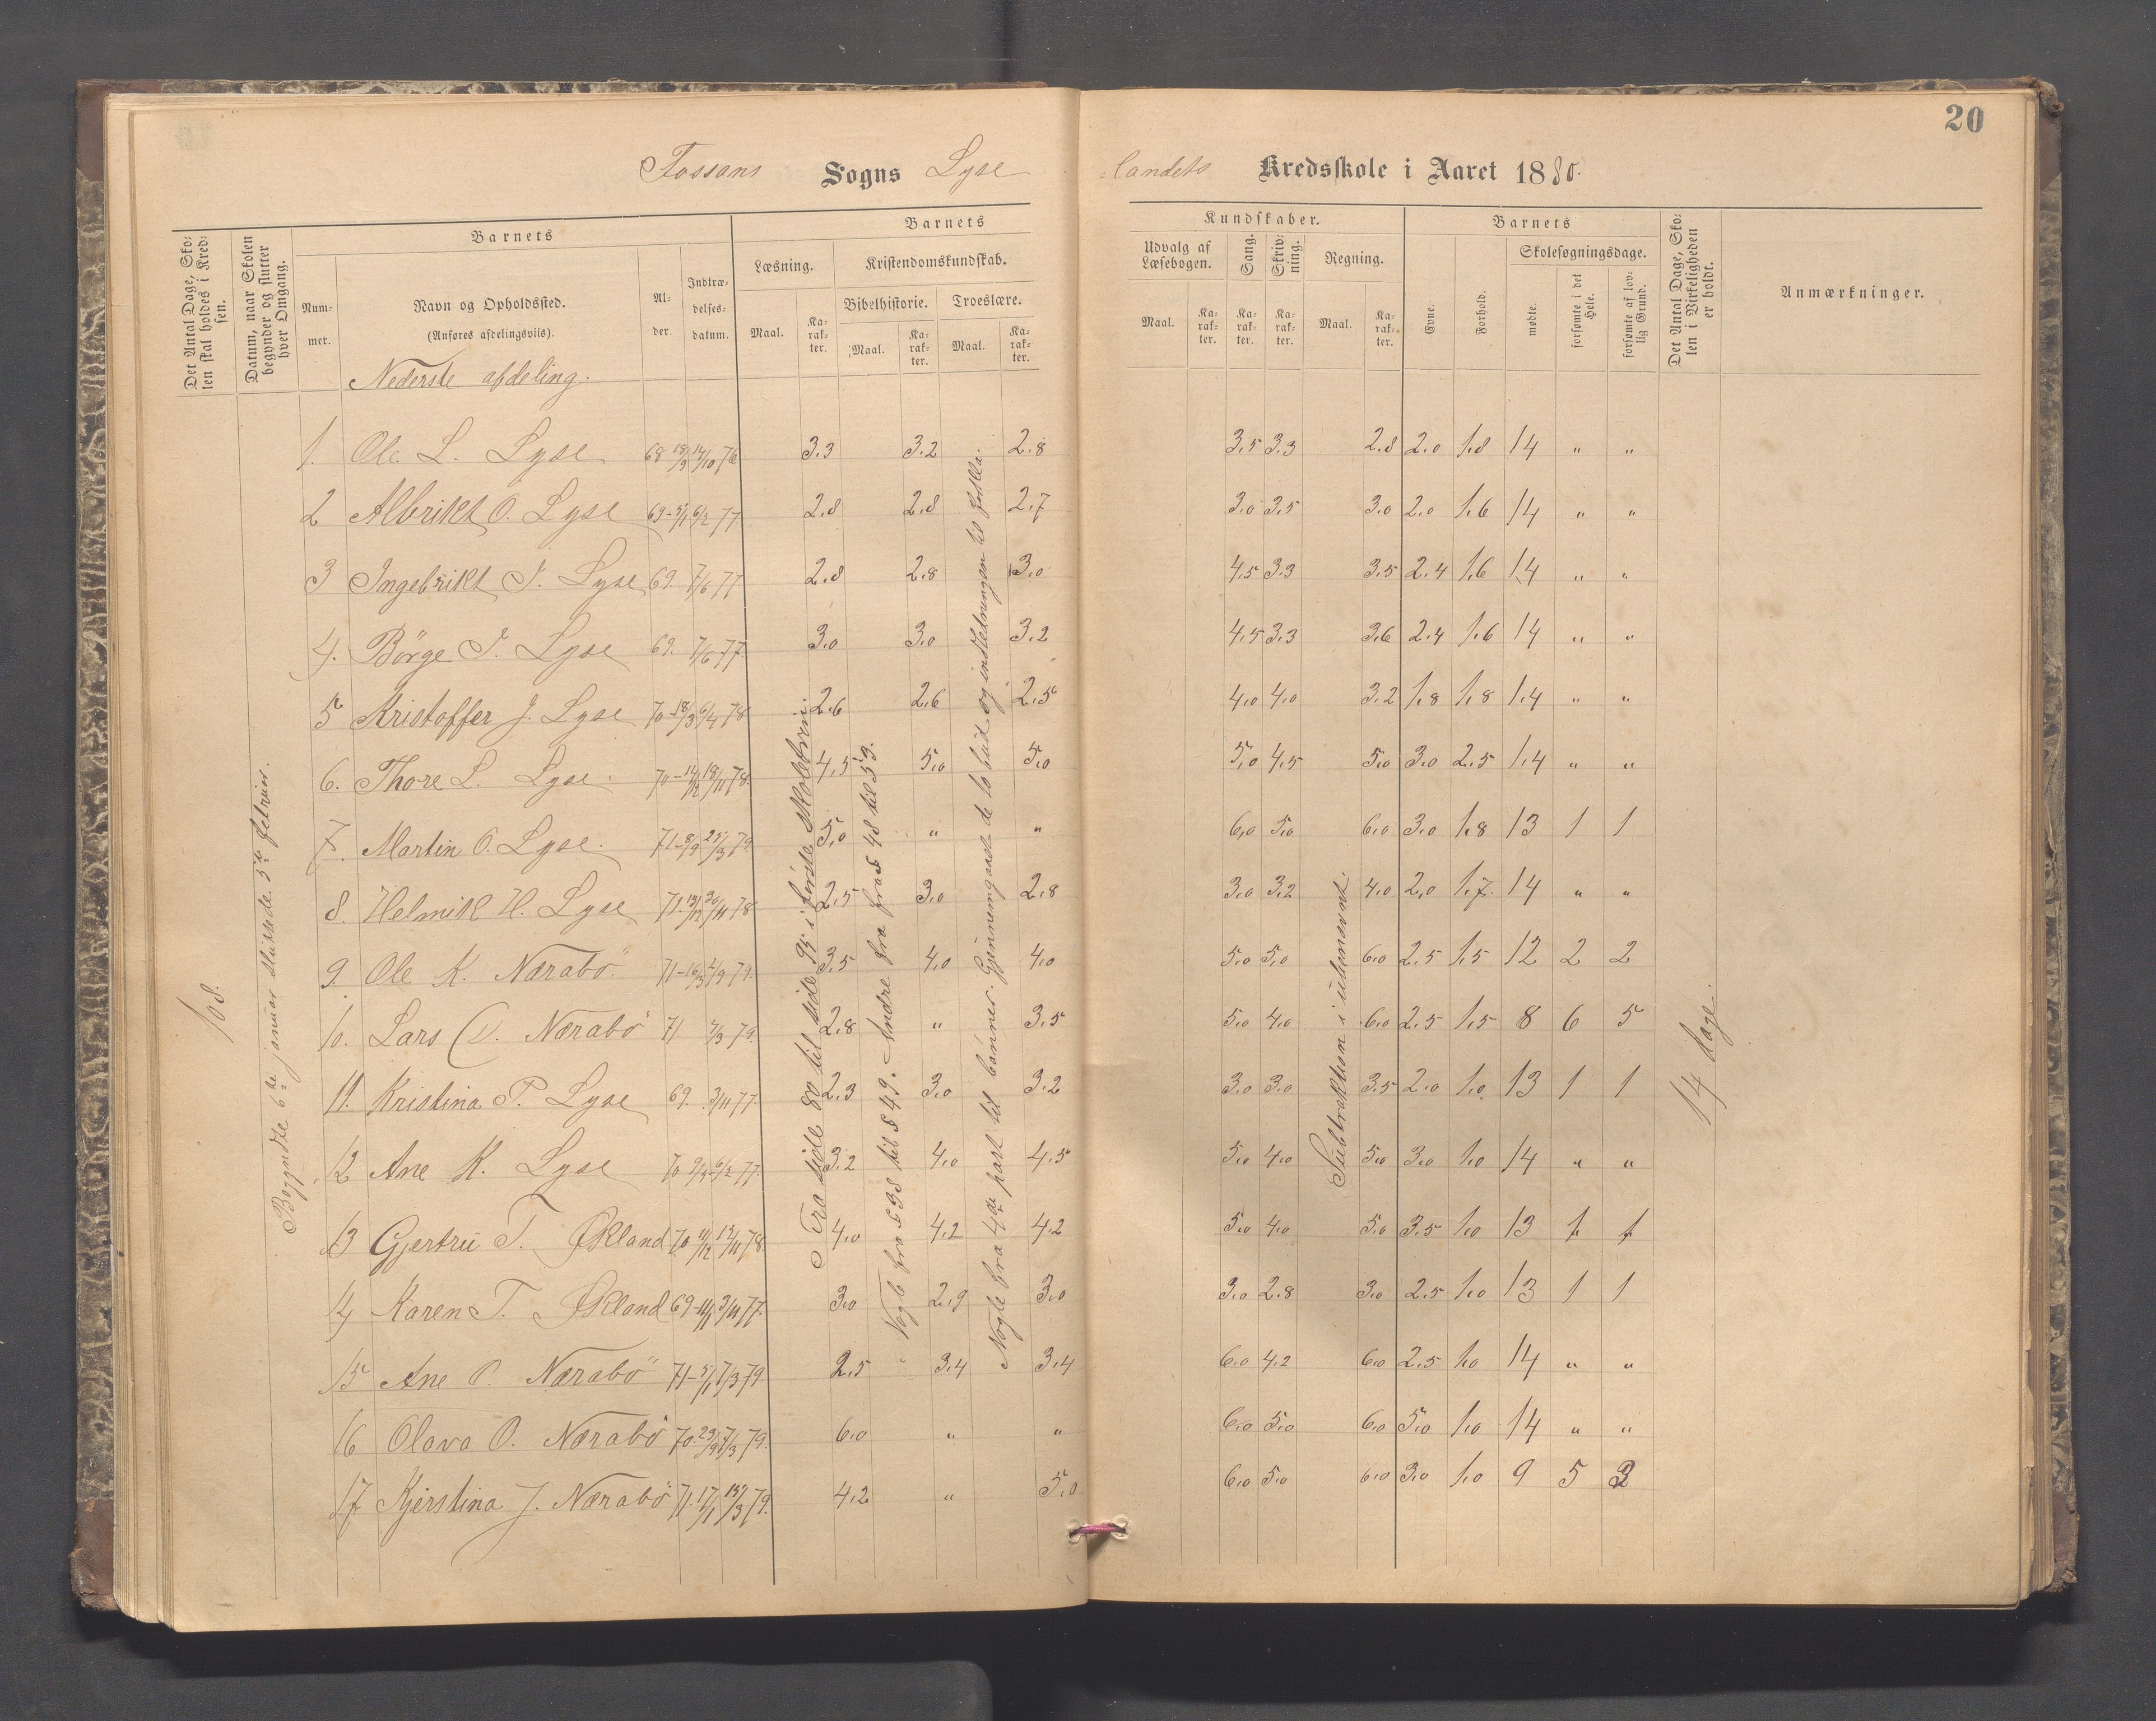 20
Fossans Sogns Lyse
landets Kredsskole i Aaret 1880.
Det Antal Dage, Skolen skal holdes i Kredsen.
Datum, naar Skolen begynder og slutter hver Omgang.
Barnets
Nummer.
Navn og Opholdssted.
(Anføres afdelingsviis).
Alder.
Indtrædelsesdatum.
Barnets
Læsning.
Kristendomskundskab.
Bibelhistorie.
Troeslære.
Maal.
Karakter.
Maal.
Karakter.
Maal.
Karakter.
Kundskaber.
Udvalg af Læsebogen.
Sang.
Skrivning.
Regning.
Maal.
Karakter.
Karakter.
Karakter.
Maal.
Karakter.
Barnets
Evne.
Forhold.
Skolesøgningsdage.
mødte.
forsømte i det Hele.
forsømte af lovlig Grund.
Det Antal Dage, Skolen i Virkeligheden er holdt.
Anmærkninger.
Nederste afdeling.
1. Ole L. Lyse 68 18/3 14/10 76 3.3 3.2 2.8 3.5 3.3 2.8 2.0 1.8 14 " "
2 Albrikt O. Lyse 69-5/1 6/2 77 2.8 2.8 2.7 3.0 3.5 3.0 2.0 1.6 14 " "
3 Ingebrikt T. Lyse 69 7/6 77 2.8 2.8 3.0 4.5 3.3 3.5 2.4 1.6 14 " "
4. Börge T. Lyse 69. 7/6 77. 3.0 3.0 3.2 4.5 3.3 3.6 2.4 1.6 14 " "
5 Kristoffer J. Lyse 70-18/3 6/4 78 2.6 2.6 2.5 4.0 4.0 3.2 1.8 1.8 14 " "
6. Thore L. Lyse. 70-14/12 18/11 78. 4.5 5.0 5.0 5.0 4.5 5.0 3.0 2.5 14 " "
7. Martin O. Lyse. 71-8/9 25/3 79 5.0 " " 6.0 5.0 6.0 3.0 1.8 13 1 1
8. Helmik H. Lyse 71. 13/12 30/11 78 2.5 3.0 2.8 3.0 3.2 4.0 2.0 1.7. 14 " "
9. Ole K. Nærabö. 71-16/3 79. 3.5 4.0 4.0 5.0 5.0 6.0 2.5 1.5 12 2 2
10. Lars O. Nærabö 71 7/3 79. 2.8 " 3.5 5.0 4.0 6.0 2.5 1.5 8 6 5
11. Kristina P. Lyse 69. 3/11 77. 2.3 3.0 3.2 3.0 3.0 3.5 2.0 1.0 13 1 1
12 Ane K. Lyse 70 9/5-6/2 77. 3.2 4.0 4.5 5.0 4.0 5.0 3.0 1.0 14 " "
13 Gjertru T. Økland 70 11/12 12/11 78 4.0 4.2 4.2 5.0 4.0 5.0 3.5 1.0 13 1 1
14 Karen T. Økland 69-14/1 3/11 77. 3.0 2.9 3.0 3.0 2.8 3.0 2.5 1.0 13 1 1
15 Ane O. Nærabö 71-5/1 7/3 79. 2.5 3.4 3.4 6.0 4.2 6.0 2.5 1.0 14 " "
16 Olava O. Nærabö 70. 23/9 7/3 79. 6.0 " " 6.0 5.0 6.0 5.0 1.0 14 " "
17 Kjerstina J. Nærabö 71. 17/1 15/3 79. 4.2 " 5.0 6.0 5.0 6.0 3.0 1.0 9 5 3
108.
Begyndte 6te januar sluttede 5te februar.
Fra side 80 til side 95 i første skoletrin.
Nogle fra § 38 til § 49. Andre fra § 48 til 53.
Nogle fra 4de part til bönner. Gjennemgaaet de to bud og indledningen til
Subtraktion i ubenevnt.
14 dage.